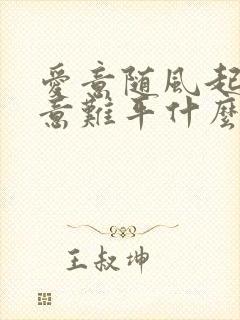 愛意随風起
意難平什麼
王叔坤